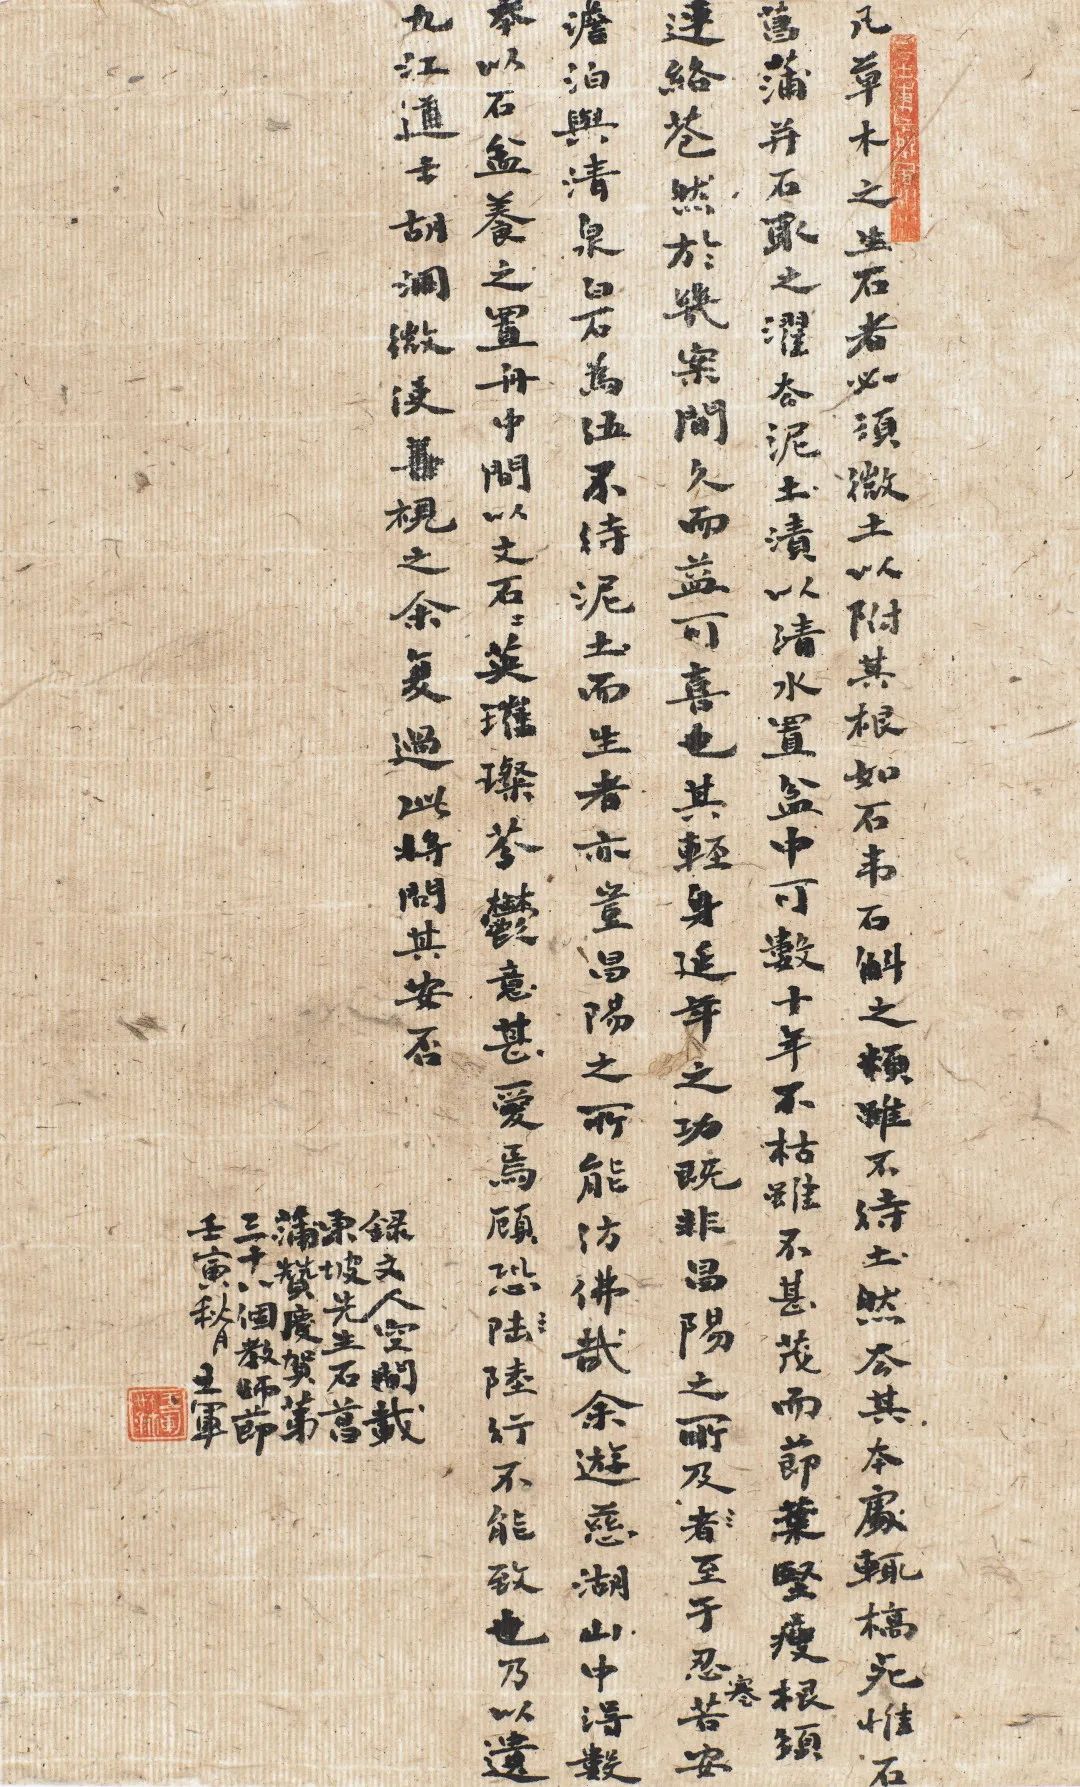 凡草木之生石者必須微土以附其根如石韦石斛之類雖不待土然去其本處輒槁死惟石
菖蒲并石取之濯去泥土漬以清水置盆中可數十年不枯雖不甚茂而節葉堅瘦根須
連絡蒼然於幾案間久而益可喜也其輕身延年之功既非昌陽之所及者至于忍苦寒安
澹泊與清泉白石為伍不待泥土而生者亦豈昌陽之所能仿佛哉余遊慈湖山中得數
本以石盆養之置舟中間以文石石英璀璨芬鬱意甚愛焉顧恐陆陸行不能致也乃以遺
九江道士胡洞微使善視之余复過此將問其安否
録文人空間載
東坡先生石菖
蒲贊慶贺第
三十八個教師節
壬寅秋月王軍